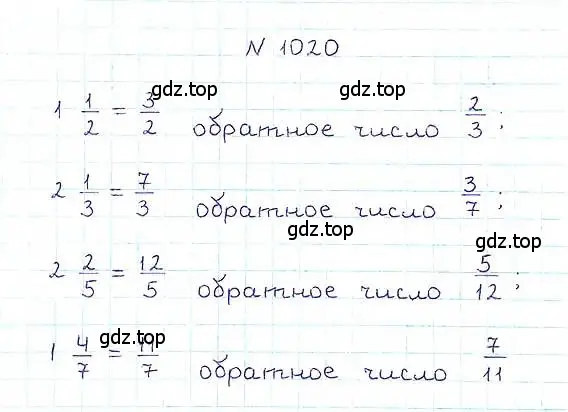 N 1020
gdz.top gdz.top
1 1/2 = 3/2 обратное число 2/3;
2 1/3 = 7/3 обратное число 3/7;
gdz.top gdz.top
2 2/5 = 12/5 обратное число 5/12;
gdz.top
1 4/7 = 11/7 обратное число 7/11